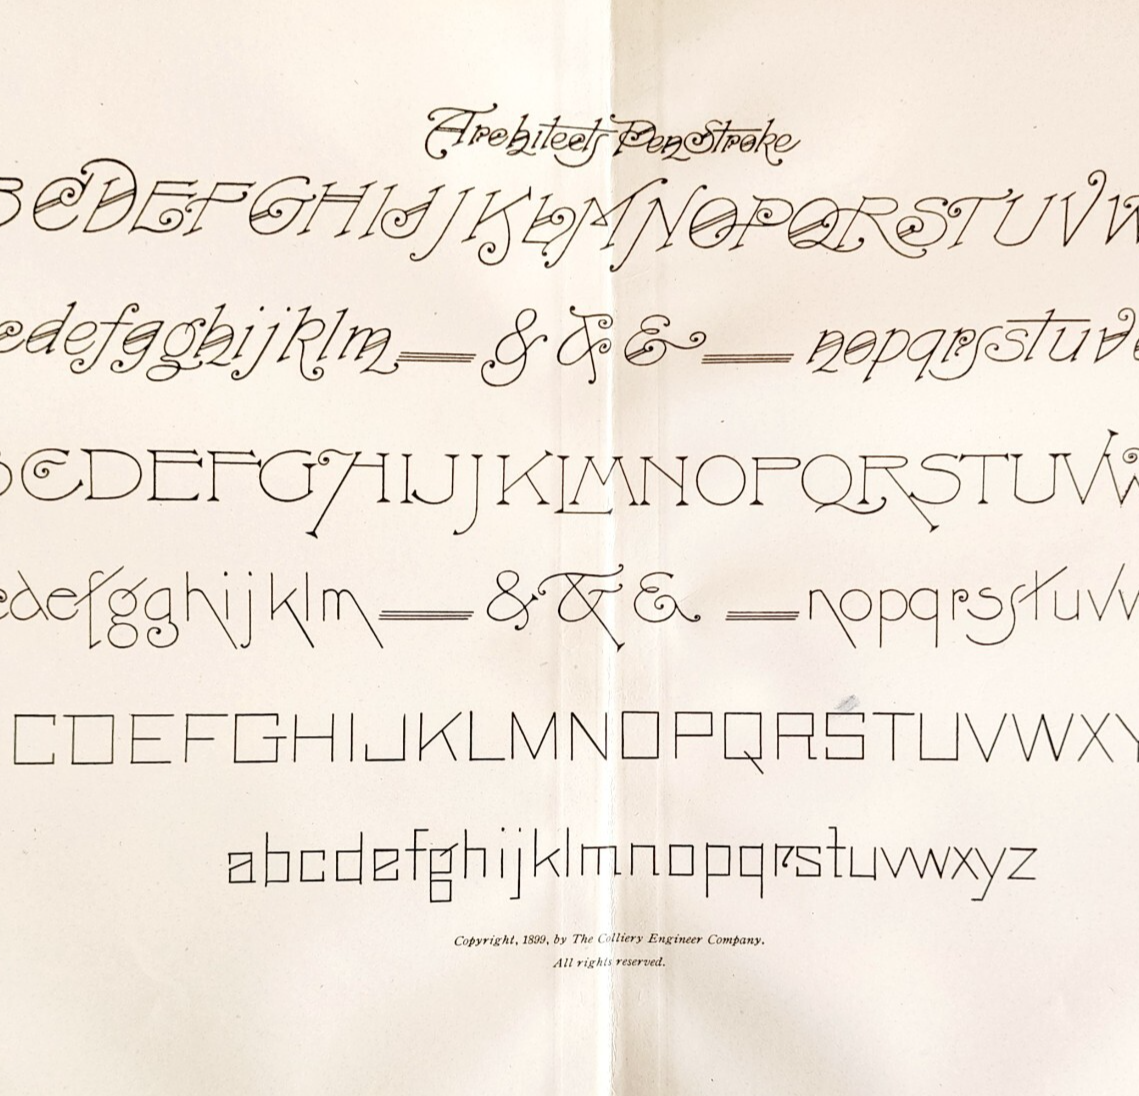 Architects Pen Stroke
BCDEFGHIJJKLMNOPQRSTUVW
cdefgghijklm & & & nopqrsstuv
BCDEFGHIJJKLMNOPQRSTUVW
cdefgghijklm & & & nopqrsstuvv
CDEFGHIJKLMNOPQRSTUVWXY
abcdefghijklmnopqrstuvwxyz
Copyright, 1899, by The Colliery Engineer Company.
All rights reserved.